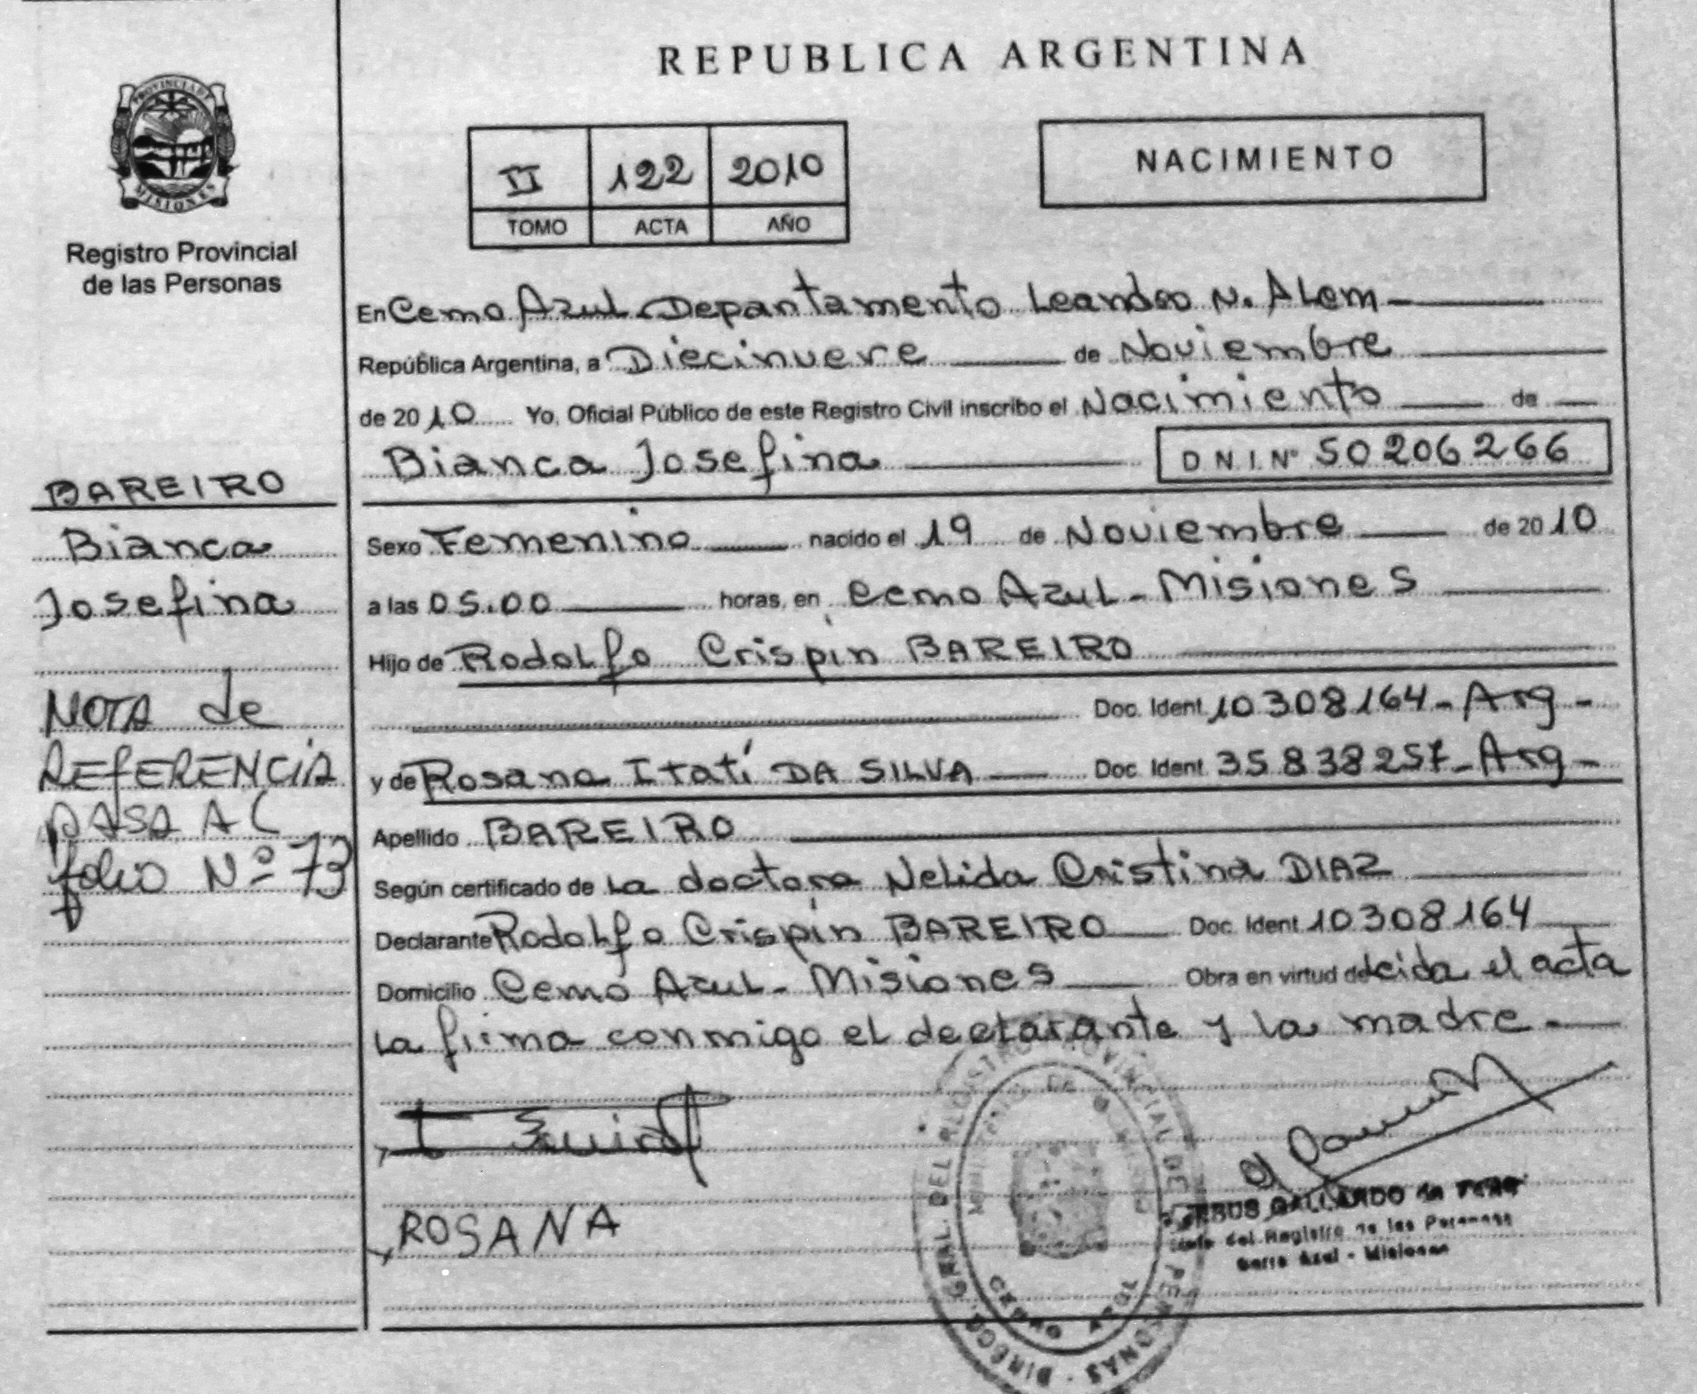 REPUBLICA ARGENTINA
PROVINCIA DE
MISIONES
Registro Provincial
de las Personas
II 122 2010
TOMO ACTA AÑO
NACIMIENTO
En Cerro Azul Departamento Leandro N. Alem
República Argentina, a Diecinueve de Noviembre
de 2010 Yo, Oficial Público de este Registro Civil inscribo el Nacimiento de
Bianca Josefina D N I Nº 50206266
Sexo Femenino nacido el 19 de Noviembre de 2010
a las 05.00 horas, en Cerro Azul - Misiones
Hijo de Rodolfo Crispín BAREIRO
Doc. Ident 10308164 - Arg -
y de Rosana Itatí DA SILVA Doc. Ident 35838257 - Arg -
Apellido BAREIRO
Según certificado de la doctora Nelida Cristina DIAZ
Declarante Rodolfo Crispín BAREIRO Doc. Ident 10308164
Domicilio Cerro Azul - Misiones Obra en virtud de leida el acta
la firma conmigo el declarante y la madre. -
ROSANA
BAREIRO
Bianca
Josefina
NOTA de
REFERENCIA
PASA AL
folio Nº 73
DIRECC. GRAL. DEL REGISTRO PROVINCIAL DE PERSONAS
CERRO AZUL
JESUS GALLARDO
Jefe del Registro de las Personas
Cerro Azul - Misiones